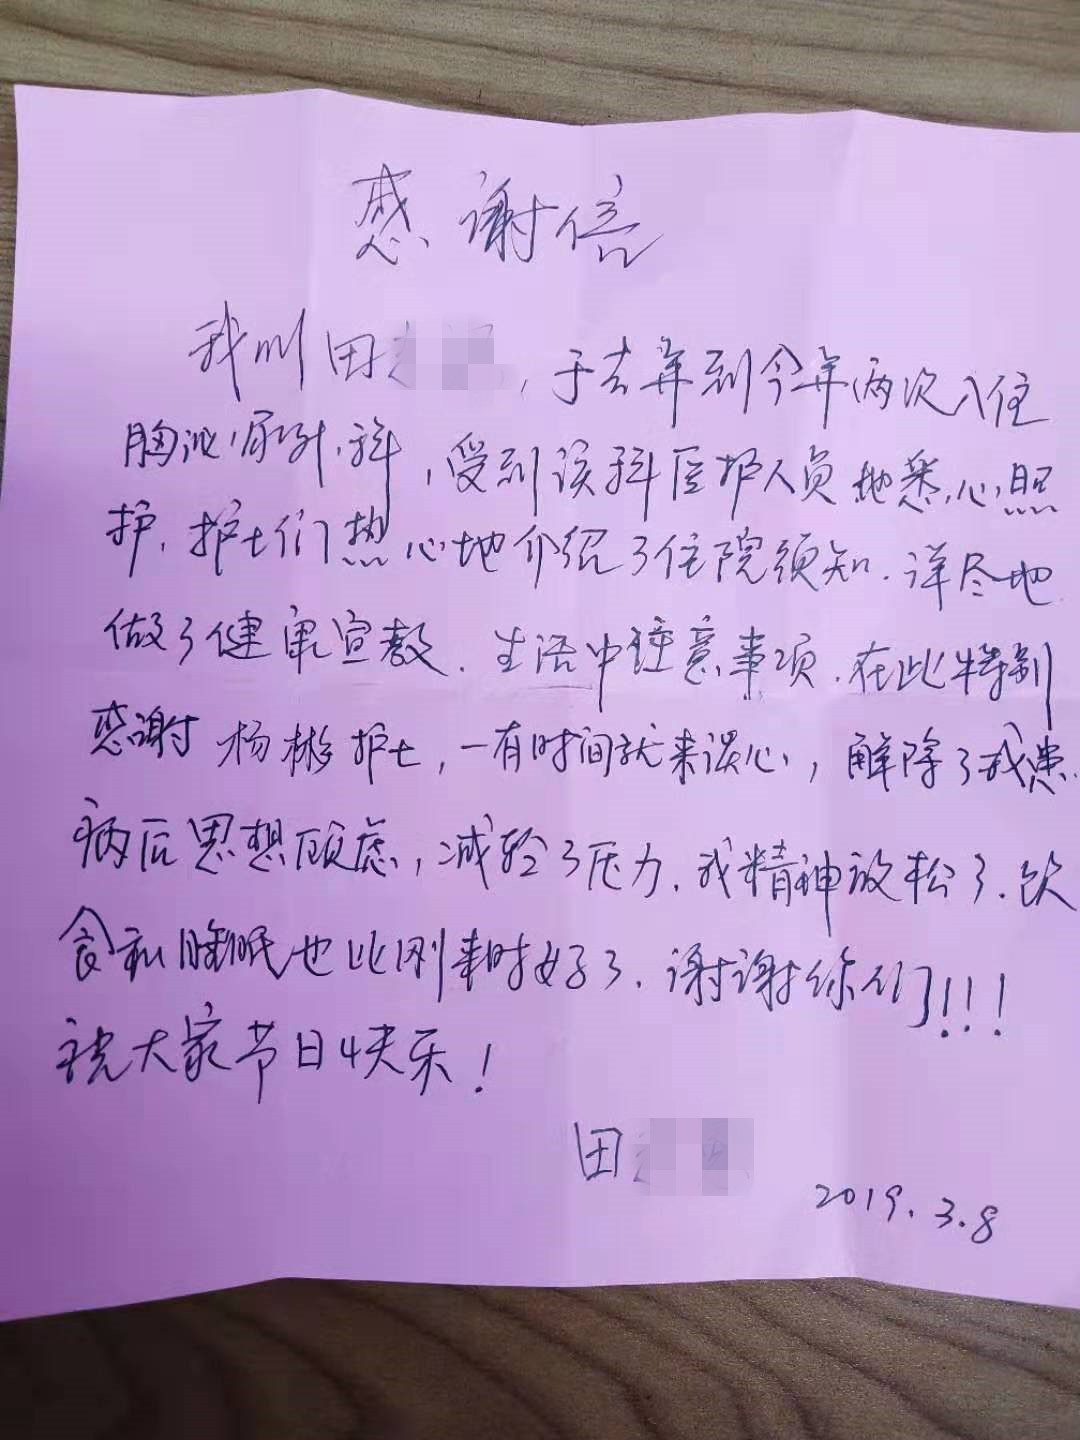 感谢信
我叫田，于去年到今年两次入住
胸泌尿外科，受到该科医护人员地悉心照
护，护士们热心地介绍了住院须知．详尽地
做了健康宣教．生活中注意事项．在此特别
感谢杨彬护士，一有时间就来谈心，解除了我患
病后思想顾虑，减轻了压力．我精神放松了．饮
食和睡眠也比刚来时好了．谢谢你们!!!
祝大家节日快乐！
田
2019.3.8